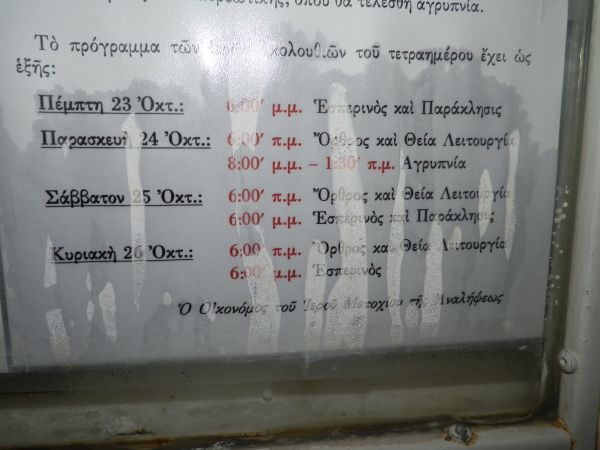 ὅπου θὰ τελεσθῆ ἀγρυπνία.
Τὸ πρόγραμμα τῶν ἱερῶν ἀκολουθιῶν τοῦ τετραημέρου ἔχει ὡς
ἑξῆς:
Πέμπτη 23 Ὀκτ.: 6:00′ μ.μ. Ἑσπερινὸς καὶ Παράκλησις
Παρασκευὴ 24 Ὀκτ.: 6:00′ π.μ. Ὄρθρος καὶ Θεία Λειτουργία
8:00′ μ.μ. – 1:30′ π.μ. Ἀγρυπνία
Σάββατον 25 Ὀκτ.: 6:00′ π.μ. Ὄρθρος καὶ Θεία Λειτουργία
6:00′ μ.μ. Ἑσπερινὸς καὶ Παράκλησις
Κυριακὴ 26 Ὀκτ.: 6:00′ π.μ. Ὄρθρος καὶ Θεία Λειτουργία
6:00′ μ.μ. Ἑσπερινὸς
Ὁ Οἰκονόμος τοῦ Ἱεροῦ Μετοχίου τῆς Ἀναλήψεως